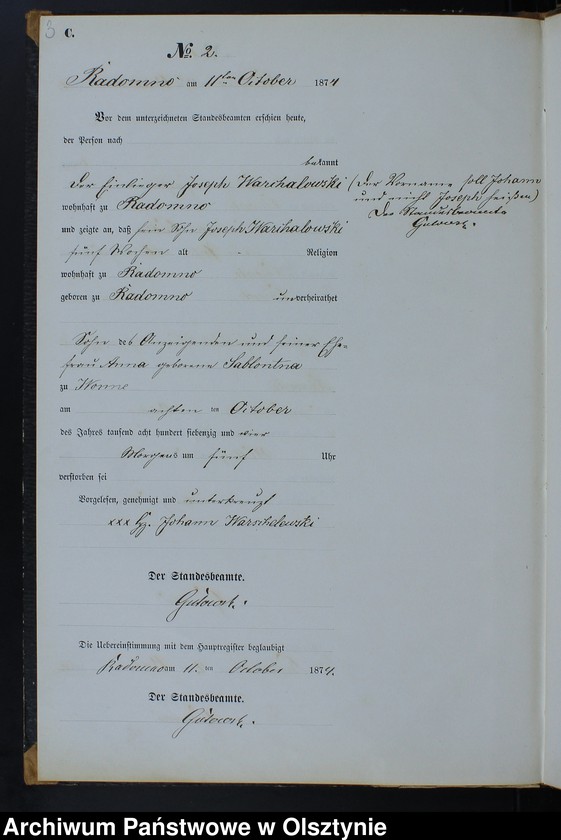 3
C.
No 2.
Radomno am 11ten October 1874
Vor dem unterzeichneten Standesbeamten erschien heute,
der Person nach
bekannt
der Einlieger Joseph Warchalowski
(Der Vorname soll Johann
und nicht Joseph heißen)
Der Standesbeamte
wohnhaft zu Radomno
und zeigte an, daß sein Sohn Joseph Warchalowski
fünf Wochen alt - Religion
wohnhaft zu Radomno
geboren zu Radomno unverheirathet
Sohn des Anzeigenden und seiner Ehe-
frau Anna geborene
zu Wonne
am achten ten October
des Jahres tausend acht hundert siebenzig und vier
Morgens um fünf Uhr
verstorben sei
Vorgelesen, genehmigt und unterkreuzt
xxx Hz. Johann Warschelewski
Der Standesbeamte.
Die Uebereinstimmung mit dem Hauptregister beglaubigt
Radomno am 11. ten October 1874.
Der Standesbeamte.
Archiwum Państwowe w Olsztynie